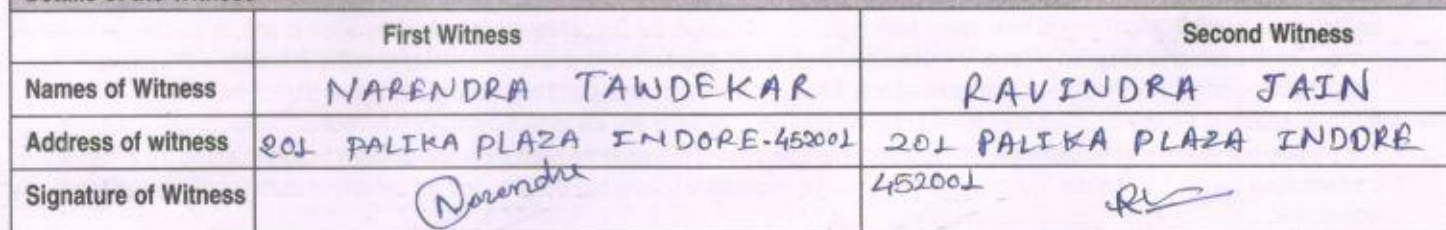 First Witness Second Witness
Names of Witness NARENDRA TAWDEKAR RAVINDRA JAIN
Address of witness 201 PALIKA PLAZA INDORE-452001 201 PALIKA PLAZA INDORE
Signature of Witness Narendre 452001